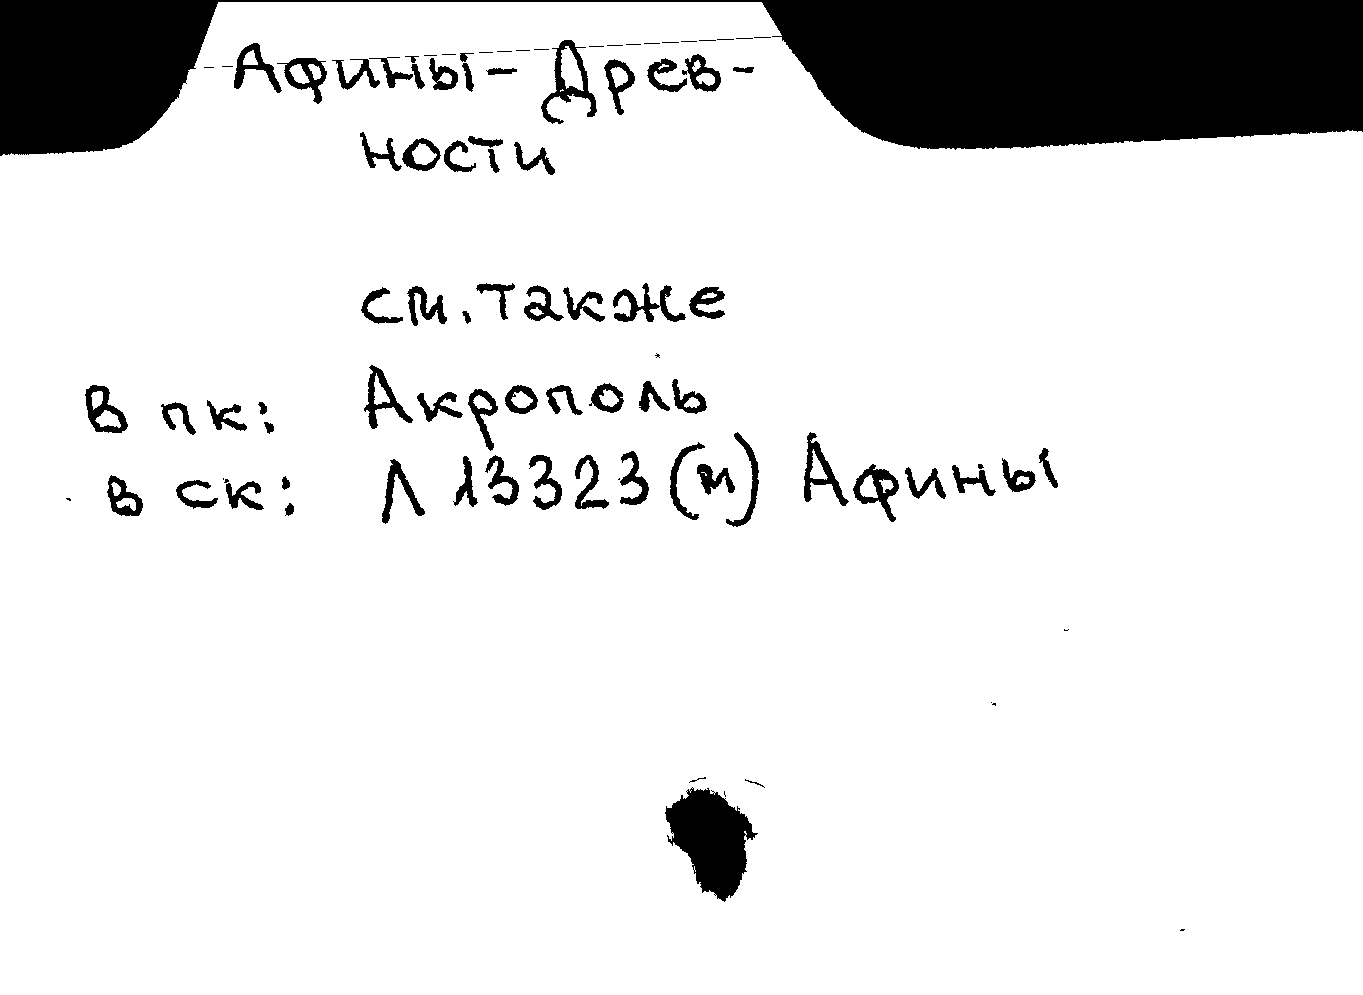 Афины - Древ-
ности
см. также
В пк: Акрополь
В ск: Л 13323 (м) Афины